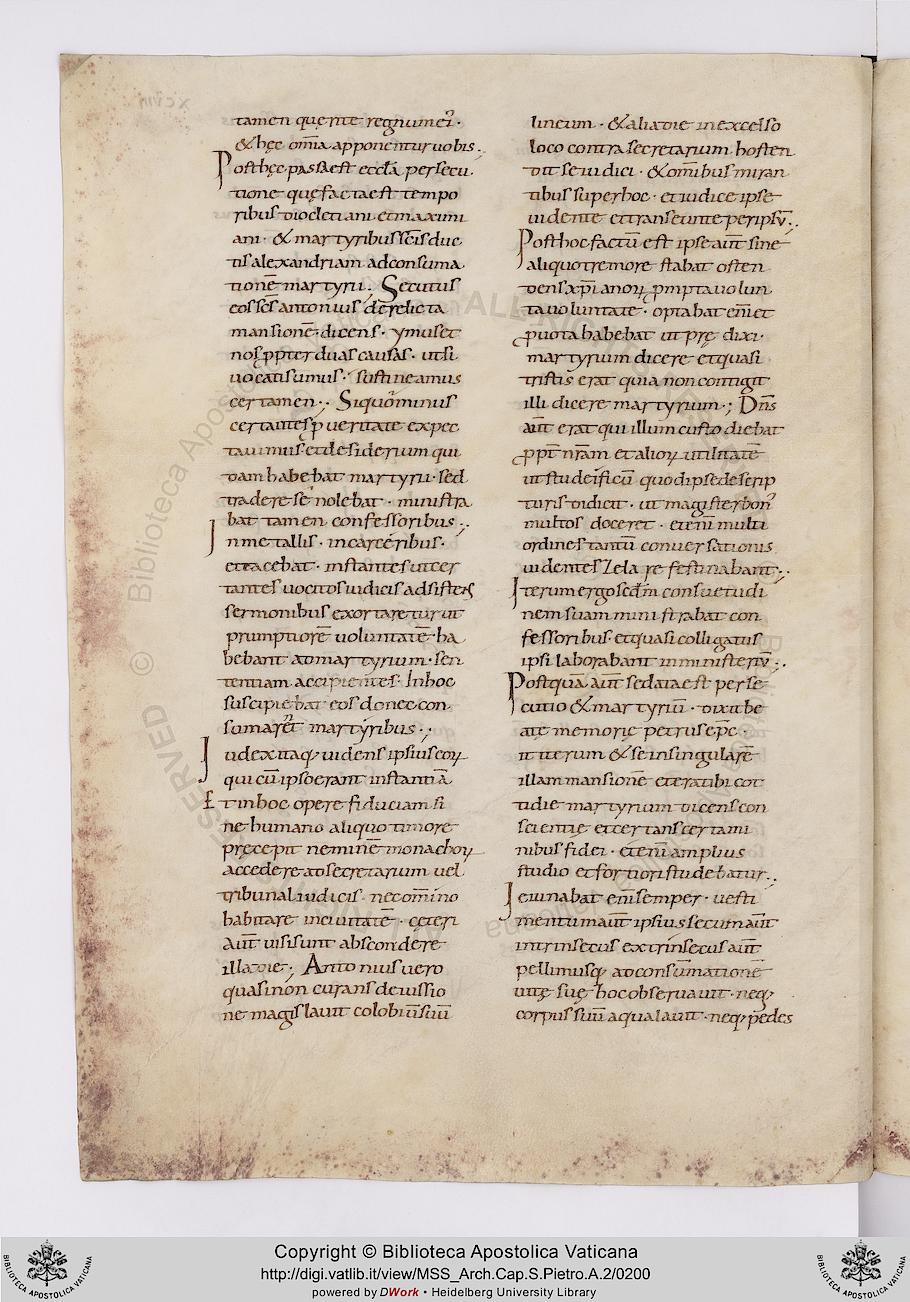 tamen quęrite regnum ei·
& hęc om̄ia apponentur uobis·,
Post hęc passa est eccl̄a persecu
tione quę facta est tempo
ribus diocletiani et maximi
ani· & martyribus sc̄is duc
tis alexandriam ad consuma
tionē martyrii·, Secutus
eos sc̄s antonius derelicta
mansionē· dicens· ymus et
nos ꝓpter duas causas· ut si
uocati sumus· sustineamus
certamen·, Si quo minus
certantes ꝓ ueritate expec
tauimus· et desiderium qui
dam habebat martyrii· sed
tradere se nolebat· ministra
bat tamen confessoribus·,
In metallis· in carceribus·
et tacebat· instantes ut cer
tantes uocitos iudicis adsisters
sermonibus exortaretur ut
prumptiorē uoluntatē ha
bebant ad martyrium· sen
tentiam accipientes. In hoc
suscipiebat eos donec con
sumaret martyribus·,
Iudex itaq; uidens ipsius eoꝝ
qui cū ipso erant instantiā
Et in hoc opere fiduciam si
ne humano aliquo timore
pręcepit neminē monachoꝝ
accedere ad secretarium uel
tribunal iudicis· nec om̄ino
habitare in ciuitatē· cęteri
aūt uisi sunt abscondere
illa die·, Antonius uero
quasi non curans de iussio
ne magis lauit colobiū suū
lineum· & alia die in excelso
loco contra secretarium hosten
dit se iudici· & om̄ibus miran
tibus super hoc· et iudice ipse
uidente et transeunte per ipsū·,
Post hoc factū est ipse aūt sine
aliquo tremore stabat osten
dens xp̄ianoꝝ ꝓmpta uolun
ta uoluntate· optabat enī et
ꝓ uota habebat ut pre dixi·
martyrium dicere et quasi
tristis erat quia non contigit
illi dicere martyrium·, Dn̄s
aūt erat qui illum custodiebat
ꝓpt̄ nr̄am et alioꝝ utilitatē
ut studeificū quod ipse de scrip
turis didicit· ut magister bon̄
multos doceret· etenī multi
ordines tantū conuersationis
uidentes zelare festinabant·,
Iterum ergo sed̄m consuetudi
nem suam ministrabat con
fessoribus et quasi colligatus
ipsi laborabant in ministeriū·,
Postquā aūt sedata est perse
cutio & martyriū· dixit be
ate memorię petrus ep̄c·
it iterum & se in singularē
illam mansionē et erat ibi cot
tidie martyrium dicens con
scientie et certans certami
nibus fidei· etenī amplius
studio et fortiori studebatur·,
Ieiunabat enī semper· uesti
mentum aūt ipsius secum aūt
intrinsecus extrinsecus aūt
pellimusq; ad consūmationē
uitę suę hoc obseruauit· neq;
corpus suū aqua lauit· neq; pedes
Copyright © Biblioteca Apostolica Vaticana
http://digi.vatlib.it/view/MSS_Arch.Cap.S.Pietro.A.2/0200
powered by DWork • Heidelberg University Library